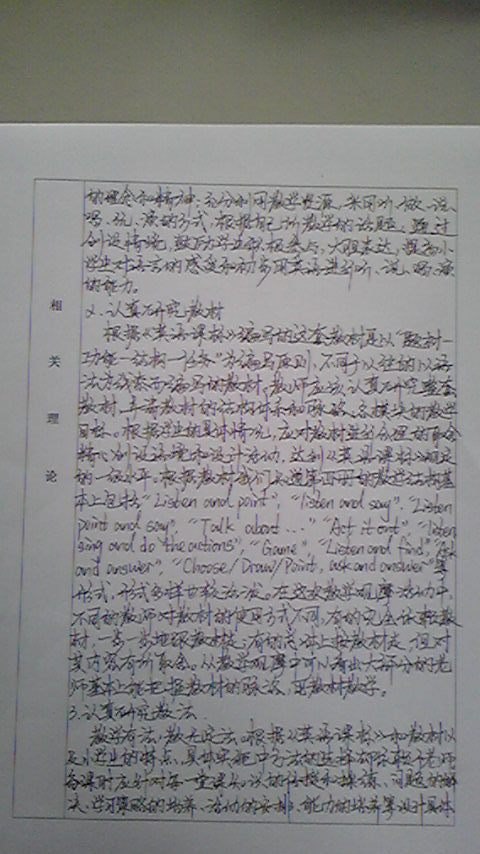 的理念和精神：充分利用教学资源，采用听、做、说、
唱、玩、演的方式，根据自己所教学的话题，通过
创设情境，鼓励学生积极参与，大胆表达，提高小
学生对语言的感受和初步用英语进行听、说、唱、演
的能力。
2.认真研究教材
根据《英语课标》编写的这套教材是以“题材—
功能—结构—任务”为编写原则，不同于以往的以语
法为线索而编写的教材，教师应该认真研究整套
教材，弄清教材的结构体系和脉络、各模块的教学
目标。根据学生的具体情况，应对教材进行合理的取舍
精心创设语境和设计活动，达到《英语课标》规定
的一级水平。根据教材我们知道第四册的教学结构基
本上包括“Listen and point”，“listen and say”，“Listen
point and say”，“Talk about…”“Act it out”，“listen
sing and do the actions”，“Game”，“Listen and find”，“Ask
and answer”，“Choose/Draw/Point, ask and answer”等
形式，形式多样也较活泼。在这次教学观摩活动中，
不同的教师对教材的使用方式不同，有的完全依靠教
材，一步一步地跟教材走，有的总体上按教材走，但对
其内容有所取舍。从教学观摩中可以看出大部分的老
师基本上能把握教材的脉络，用教材教学。
3.认真研究教法
教学有法，教无定法。根据《英语课标》和教材以
及小学生的特点，具体实施中方法的选择
备课时应针对每一堂课 的 和操练、问题的解
决、学习策略的培养、活动的安排、能力的培养等设计具体
相关理论